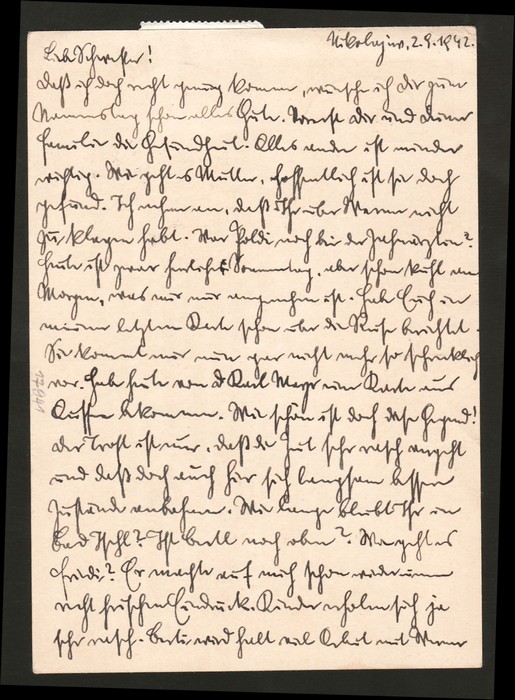 Nikolajew, 2.9.1942.
Lieb Schwester!
Daß ich doch recht genug komme, wünsche ich dir zum
Namenstag schon alles Gute. Vorerst dir und deiner
Familie die Gesundheit. Alles andre ist minder
wichtig. Wie geht es Mutter, hoffentlich ist sie doch
gesund. Ich nehme an, daß Ihr über Wärme nicht
zu klagen habt. War Poldi noch bei der Zahnärztin?
Heute ist zwar herrlichster Sonnentag, aber schon kühl am
Morgen, was mir nur angenehm ist. Hab Euch in
meiner letzten Karte schon über die Reise berichtet.
Sie kommt mir nun gar nicht mehr so schrecklich
vor. Habe heute von Karl Mayr eine Karte aus
Aussee bekommen. Wie schön ist doch diese Gegend!
Der Trost ist nur, daß die Zeit sehr rasch vergeht
und daß doch auch hier sich langsam bessere
Zustände anbahnen. Wie lange bleibt Ihr in
Bad Ischl? Ist Bertl noch oben? Wie geht es
Friedi? Er machte auf mich schon wiederum
recht frischen Eindruck. Kinder erholen sich ja
sehr rasch. Berta wird halt viel Arbeit mit
17941